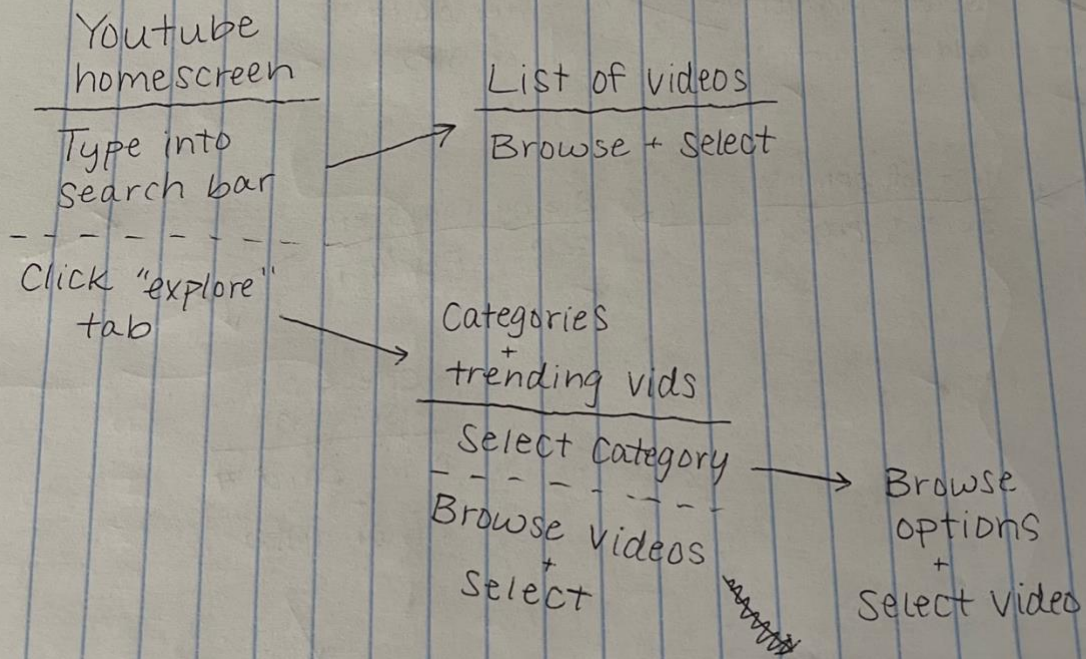 Youtube
homescreen
Type into
search bar
Click "explore"
tab
List of videos
Browse + Select
Categories
+
trending vids
Select Category
Browse Videos
+
Select
Browse
options
+
Select video